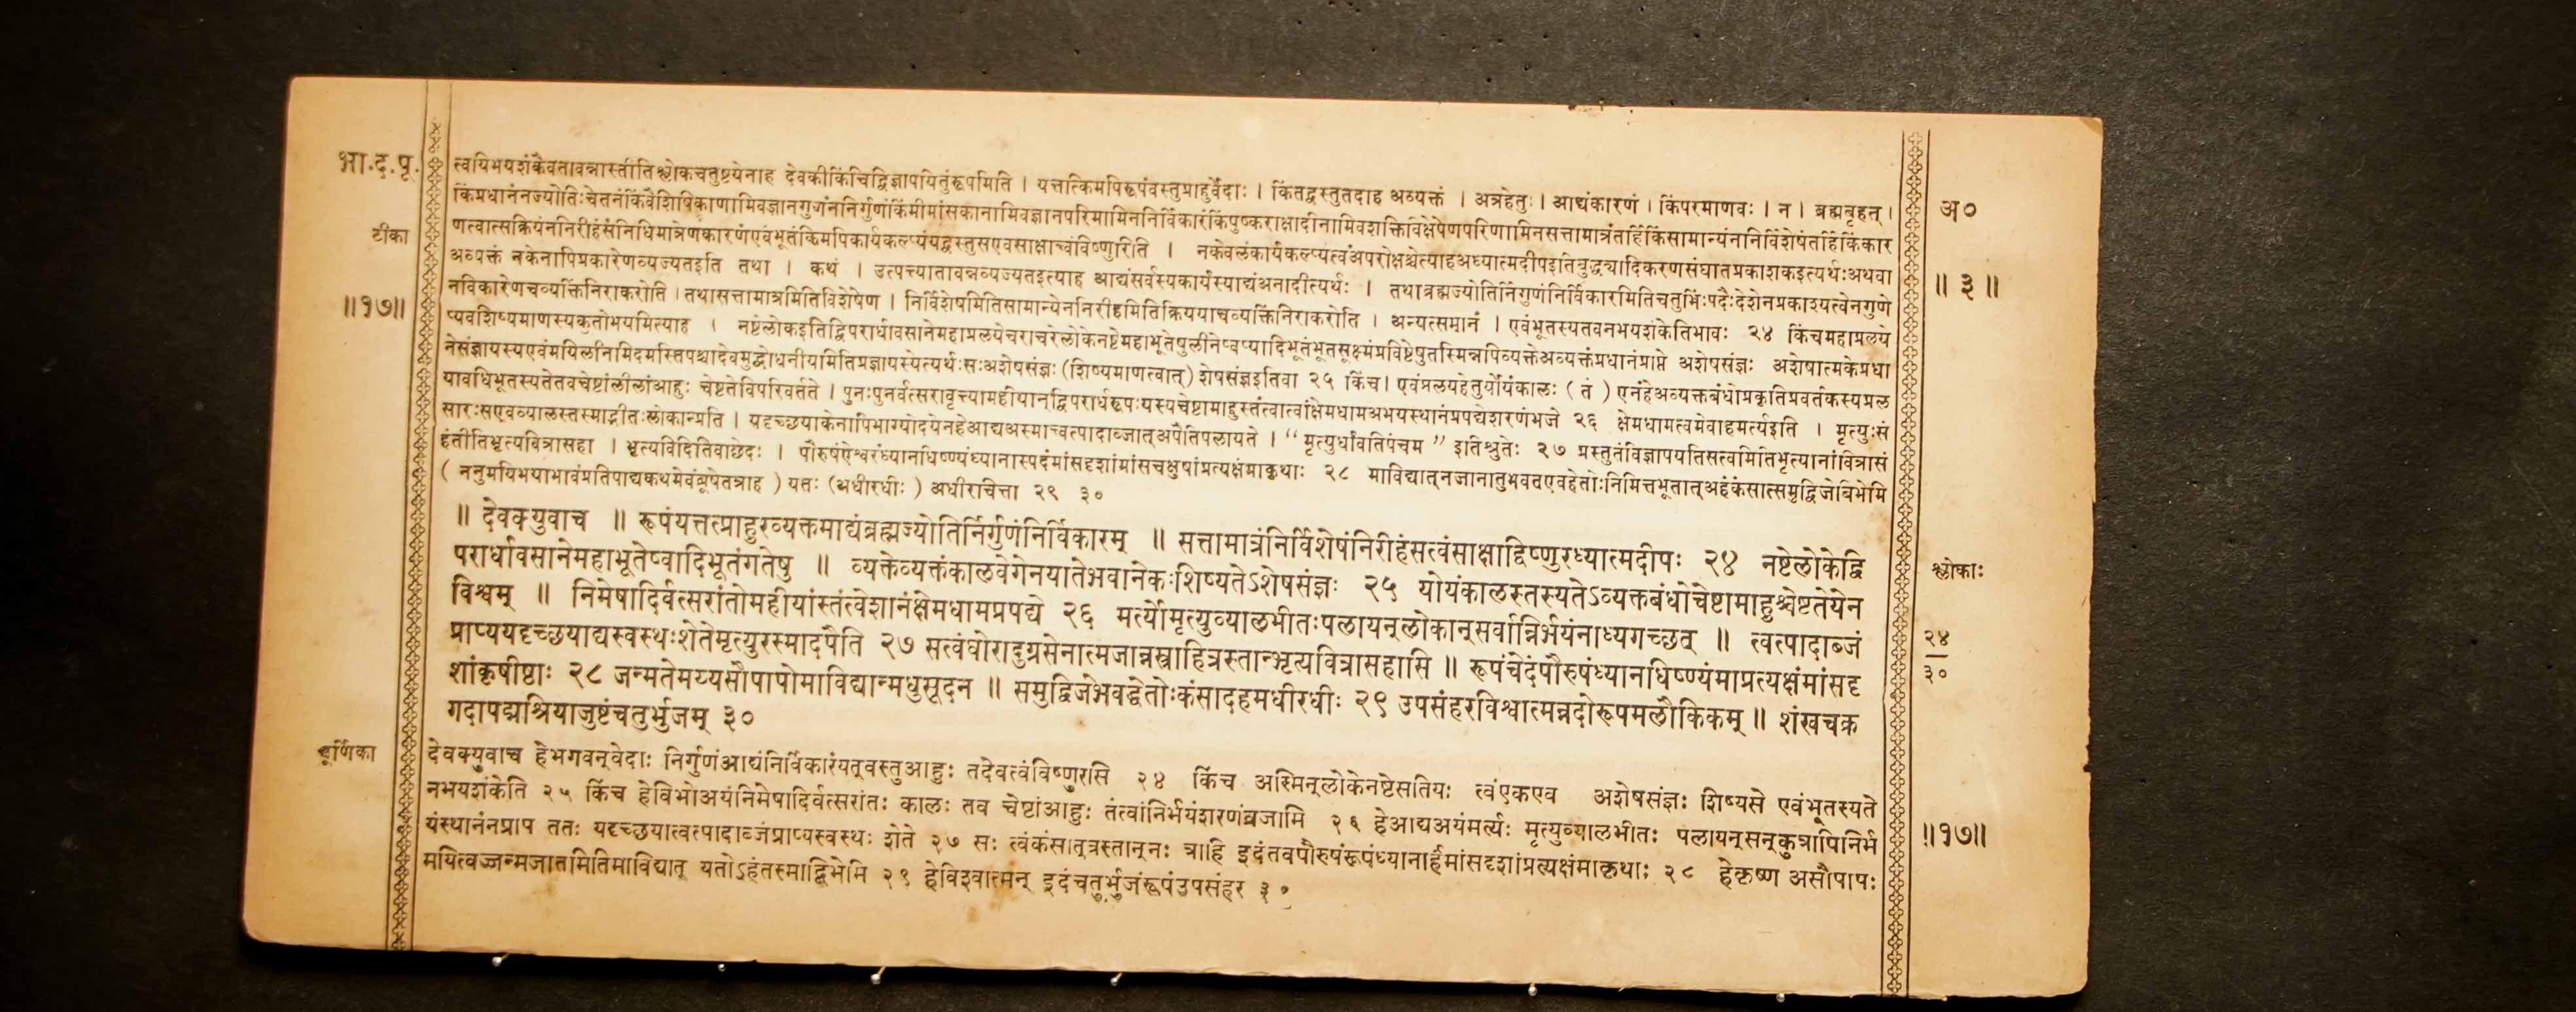 भा.द.पू.
टीका
॥१७॥
अ०
॥ ३ ॥
त्वयिभयशंकैवतावन्नास्तीतिश्लोकचतुष्टयेनाह देवकीकिंचिद्विज्ञापयितुंरूपमिति । यत्तत्किमपिरूपंवस्तुप्राहुर्वेदाः । किंतद्वस्तुतदाह अव्यक्तं । अत्रहेतुः । आद्यंकारणं । किंपरमाणवः । न । ब्रह्मबृहत् ।
किंप्रधानंनज्योतिःचेतनंकिंवैशेषिकाणामिवज्ञानगुणंननिर्गुणंकिंमीमांसकानामिवज्ञानपरिणामिननिर्विकारंकिंपुष्कराक्षादीनामिवशक्तिविक्षेपेणपरिणामिनसत्तामात्रंतर्हिकिंसामान्यंननिर्विशेषंतर्हिकिंकार
णत्वात्सक्रियंननिरीहंसंनिधिमात्रेणकारणंएवंभूतंकिमपिकार्यकल्प्यंयद्वस्तुसएवसाक्षात्त्वंविष्णुरिति । नकेवलंकार्यकल्प्यत्वंअपरोक्षश्चेत्याहअध्यात्मदीपइतिबुद्ध्यादिकरणसंघातप्रकाशकइत्यर्थःअथवा
अव्यक्तं नकेनापिप्रकारेणव्यज्यतइति तथा । कथं । उत्पत्त्यातावन्नव्यज्यतइत्याह आद्यंसर्वस्यकार्यस्याद्यंअनादीत्यर्थः । तथाब्रह्मज्योतिर्निर्गुणंनिर्विकारमितिचतुर्भिःपदैःदेशेनप्रकाश्यत्वेनगुणे
नविकारेणचव्यक्तिंनिराकरोति । तथासत्तामात्रमितिविशेषेण । निर्विशेषमितिसामान्येननिरीहमितिक्रिययाचव्यक्तिंनिराकरोति । अन्यत्समानं । एवंभूतस्यतवनभयशंकेतिभावः २४ किंचमहाप्रलये
प्यवशिष्यमाणस्यकुतोभयमित्याह । नष्टेलोकइतिद्विपरार्धावसानेमहाप्रलयेचराचरेलोकेनष्टेमहाभूतेषुलीनेष्वप्यादिभूतंभूतसूक्ष्मंप्रविष्टेषुतस्मिन्नपिव्यक्तेअव्यक्तंप्रधानंप्राप्ते अशेषसंज्ञः अशेषात्मकेप्रधा
नेसंज्ञायस्यएवंमयिलीनमिदमस्तिपश्चादेवमुद्बोधनीयमितिप्रज्ञायस्येत्यर्थःसःअशेषसंज्ञः (शिष्यमाणत्वात्) शेषसंज्ञइतिवा २५ किंच। एवंप्रलयहेतुर्योयंकालः ( तं ) एनंहेअव्यक्तबंधोप्रकृतिप्रवर्तकस्यप्रल
यावधिभूतस्यतेतवचेष्टांलीलांआहुः चेष्टतेविपरिवर्तते । पुनःपुनर्वत्सरावृत्त्यामहीयान्द्विपरार्धरूपःयस्यचेष्टामाहुस्तंत्वात्वांक्षेमधामअभयस्थानंप्रपद्येशरणंभजे २६ क्षेमधामत्वमेवाहमर्त्यइति । मृत्युःसं
सारःसएवव्यालस्तस्माद्भीतःलोकान्प्रति । यदृच्छयाकेनापिभाग्योदयेनहेआद्यअस्मात्त्वत्पादाब्जात्अपैतिपलायते । “मृत्युर्धावतिपंचम ” इतिश्रुतेः २७ प्रस्तुतंविज्ञापयतिसत्वमितिभृत्यानांवित्रासं
हंतीतिभृत्यवित्रासहा । भृत्यविदितिवाछेदः । पौरुषंऐश्वरंध्यानधिष्ण्यंध्यानास्पदंमांसदृशांमांसचक्षुषांप्रत्यक्षंमाकृथाः २८ माविद्यात्नजानातुभवतएवहेतोःनिमित्तभूतात्अहंकंसात्समुद्विजेबिभेमि
( ननुमयिभयाभावंप्रतिपाद्यकथमेवंब्रूषेतत्राह ) यतः (अधीरधीः ) अधीरचित्ता २९ ३०
॥ देवक्युवाच ॥ रूपंयत्तत्प्राहुरव्यक्तमाद्यंब्रह्मज्योतिर्निर्गुणंनिर्विकारम् ॥ सत्तामात्रंनिर्विशेषंनिरीहंसत्वंसाक्षाद्विष्णुरध्यात्मदीपः २४ नष्टेलोकेद्वि
परार्धावसानेमहाभूतेष्वादिभूतंगतेषु ॥ व्यक्तेव्यक्तंकालवेगेनयातेभवानेकःशिष्यतेऽशेषसंज्ञः २५ योयंकालस्तस्यतेऽव्यक्तबंधोचेष्टामाहुश्चेष्टतेयेन
विश्वम् ॥ निमेषादिर्वत्सरांतोमहीयांस्तंत्वेशानंक्षेमधामप्रपद्ये २६ मर्त्योमृत्युव्यालभीतःपलायन्लोकान्सर्वान्निर्भयंनाध्यगच्छत् ॥ त्वत्पादाब्जं
प्राप्ययदृच्छयाद्यस्वस्थःशेतेमृत्युरस्मादपैति २७ सत्वंघोरादुग्रसेनात्मजान्नस्त्राहित्रस्तान्भृत्यवित्रासहासि ॥ रूपंचेदंपौरुषंध्यानधिष्ण्यंमाप्रत्यक्षंमांसदृ
शांकृषीष्ठाः २८ जन्मतेमय्यसौपापोमाविद्यान्मधुसूदन ॥ समुद्विजेभवद्धेतोःकंसादहमधीरधीः २९ उपसंहरविश्वात्मन्नदोरूपमलौकिकम् ॥ शंखचक्र
गदापद्मश्रियाजुष्टंचतुर्भुजम् ३०
श्लोकाः
२४
३०
चूर्णिका
देवक्युवाच हेभगवन्वेदाः निर्गुणंआद्यंनिर्विकारंयत्वस्तुआहुः तदेवत्वंविष्णुरसि २४ किंच अस्मिन्लोकेनष्टेसतियः त्वंएकएव अशेषसंज्ञः शिष्यसे एवंभूतस्यते
नभयशंकेति २५ किंच हेविभोअयंनिमेषादिर्वत्सरांतः कालः तव चेष्टांआहुः तंत्वांनिर्भयंशरणंव्रजामि २६ हेआद्यअयंमर्त्यः मृत्युव्यालभीतः पलायन्सन्कुत्रापिनिर्भ
यंस्थानंनप्राप ततः यदृच्छयात्वत्पादाब्जंप्राप्यस्वस्थः शेते २७ सः त्वंकंसात्त्रस्तान्नः त्राहि इदंतवपौरुषंरूपंध्यानार्हंमांसदृशांप्रत्यक्षंमाकृथाः २८ हेकृष्ण असौपापः
मयित्वज्जन्मजातमितिमाविद्यात् यतोऽहंतस्माद्बिभेमि २९ हेविश्वात्मन् इदंचतुर्भुजंरूपंउपसंहर ३०
॥१७॥